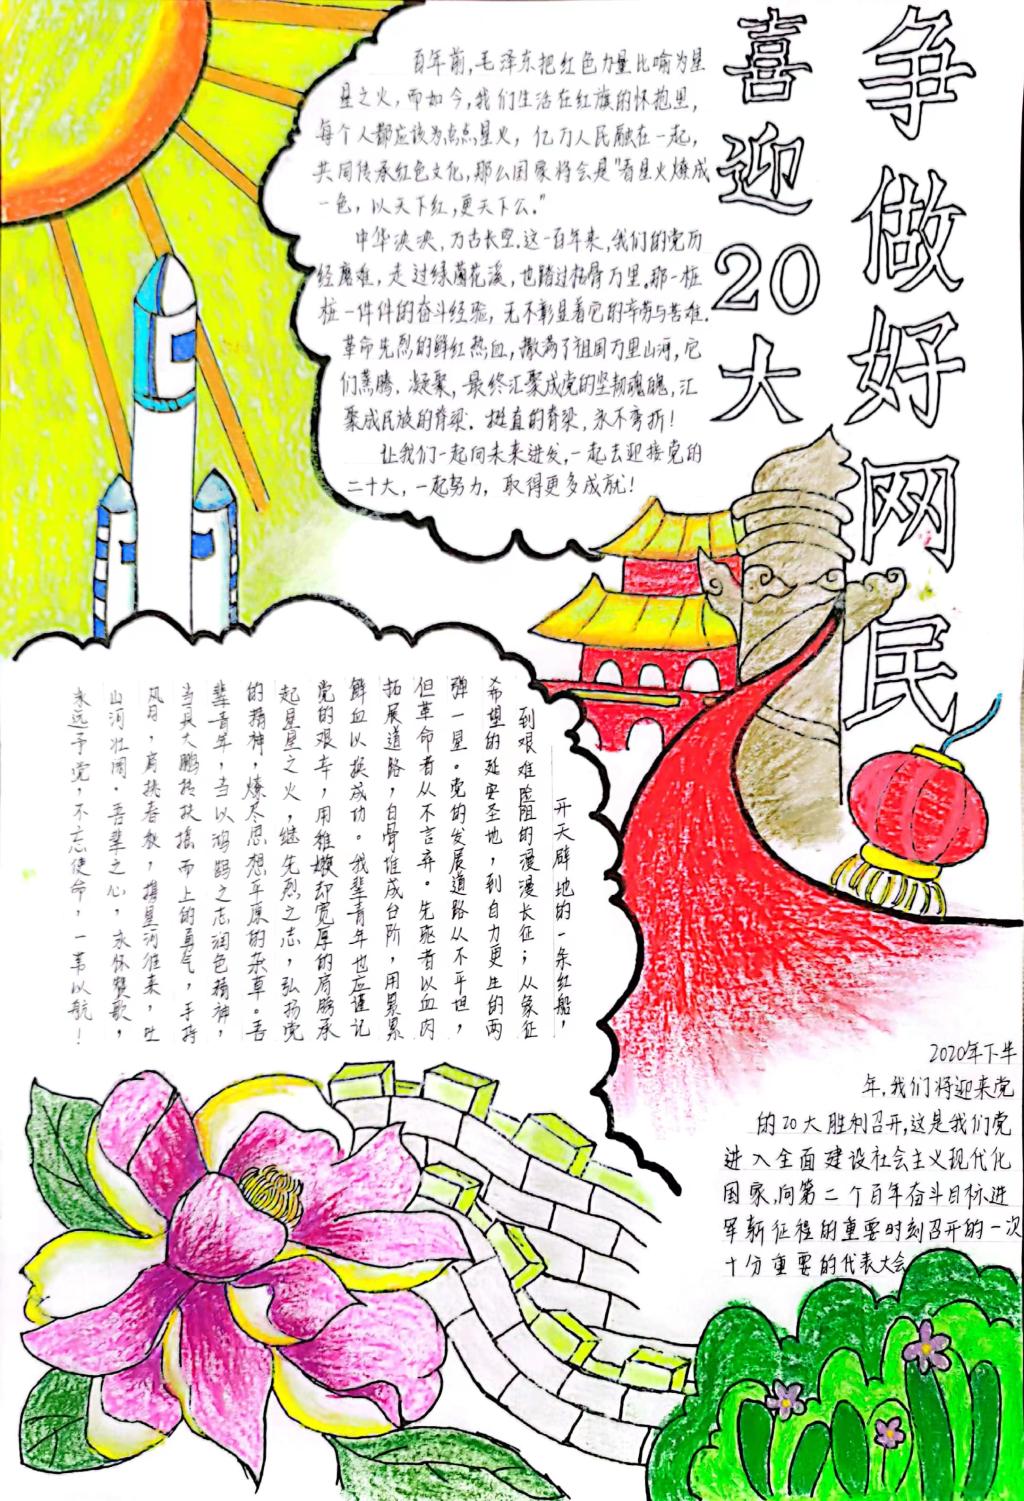 争做好网民
喜迎20大
百年前,毛泽东把红色力量比喻为星
星之火,而如今,我们生活在红旗的怀抱里,
每个人都应该为点点星火,亿万人民融在一起,
共同传承红色文化,那么国家将会是"看星火燎成
一色,以天下红,更天下公."
中华泱泱,万古长空.这一百年来,我们的党历
经磨难,走过绿茵花溪,也踏过枯骨万里.那一桩
桩一件件的奋斗经验,无不彰显着它的辛劳与苦难.
革命先烈的鲜红热血,撒满了祖国万里山河,它
们蒸腾、凝聚,最终汇聚成党的坚韧魂魄,汇
聚成民族的脊梁.挺直的脊梁,永不弯折!
让我们一起向未来进发,一起去迎接党的
二十大,一起努力,取得更多成就!
开天辟地的一条红船,
到艰难险阻的漫漫长征;从象征
希望的延安圣地,到自力更生的两
弹一星。党的发展道路从不平坦,
但革命者从不言弃。先驱者以血肉
拓展道路,白骨堆成台阶,用累累
鲜血以换成功。我辈青年也应谨记
党的艰辛,用稚嫩却宽厚的肩膀承
起星星之火,继先烈之志,弘扬党
的精神,燎尽思想平原的杂草。吾
辈青年,当以鸿鹄之志润色精神,
当具大鹏扶摇而上的勇气,手持
风月,肩挑春秋,携星河往来,吐
山河壮阔.吾辈之心,永怀赞歌,
永远予党,不忘使命,一苇以航!
2020年下半
年,我们将迎来党
的20大胜利召开,这是我们党
进入全面建设社会主义现代化
国家,向第二个百年奋斗目标进
军新征程的重要时刻召开的一次
十分重要的代表大会